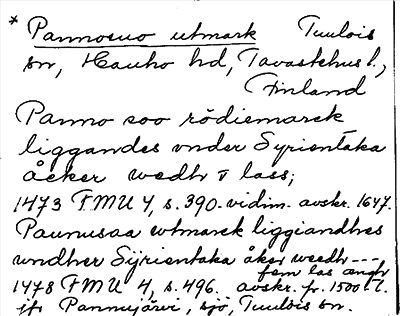 * Pannosuo utmark Tuulois
sn, Hauho hd, Tavastehus l.,
Finland
Panno soo rödiemarck
liggandes vnder Syrientaka
åcker wedh v lass;
1473 FMU 4, s. 390. vidim. avskr. 1647.
Paunusaa wtmarck liggiandhes
wndher Sÿrientaka åker weedh ---
fem las ængh
1478 FMU 4, s. 496. avskr. fr. 1500-t.
jfr Pannujärvi, sjö, Tuulois sn.